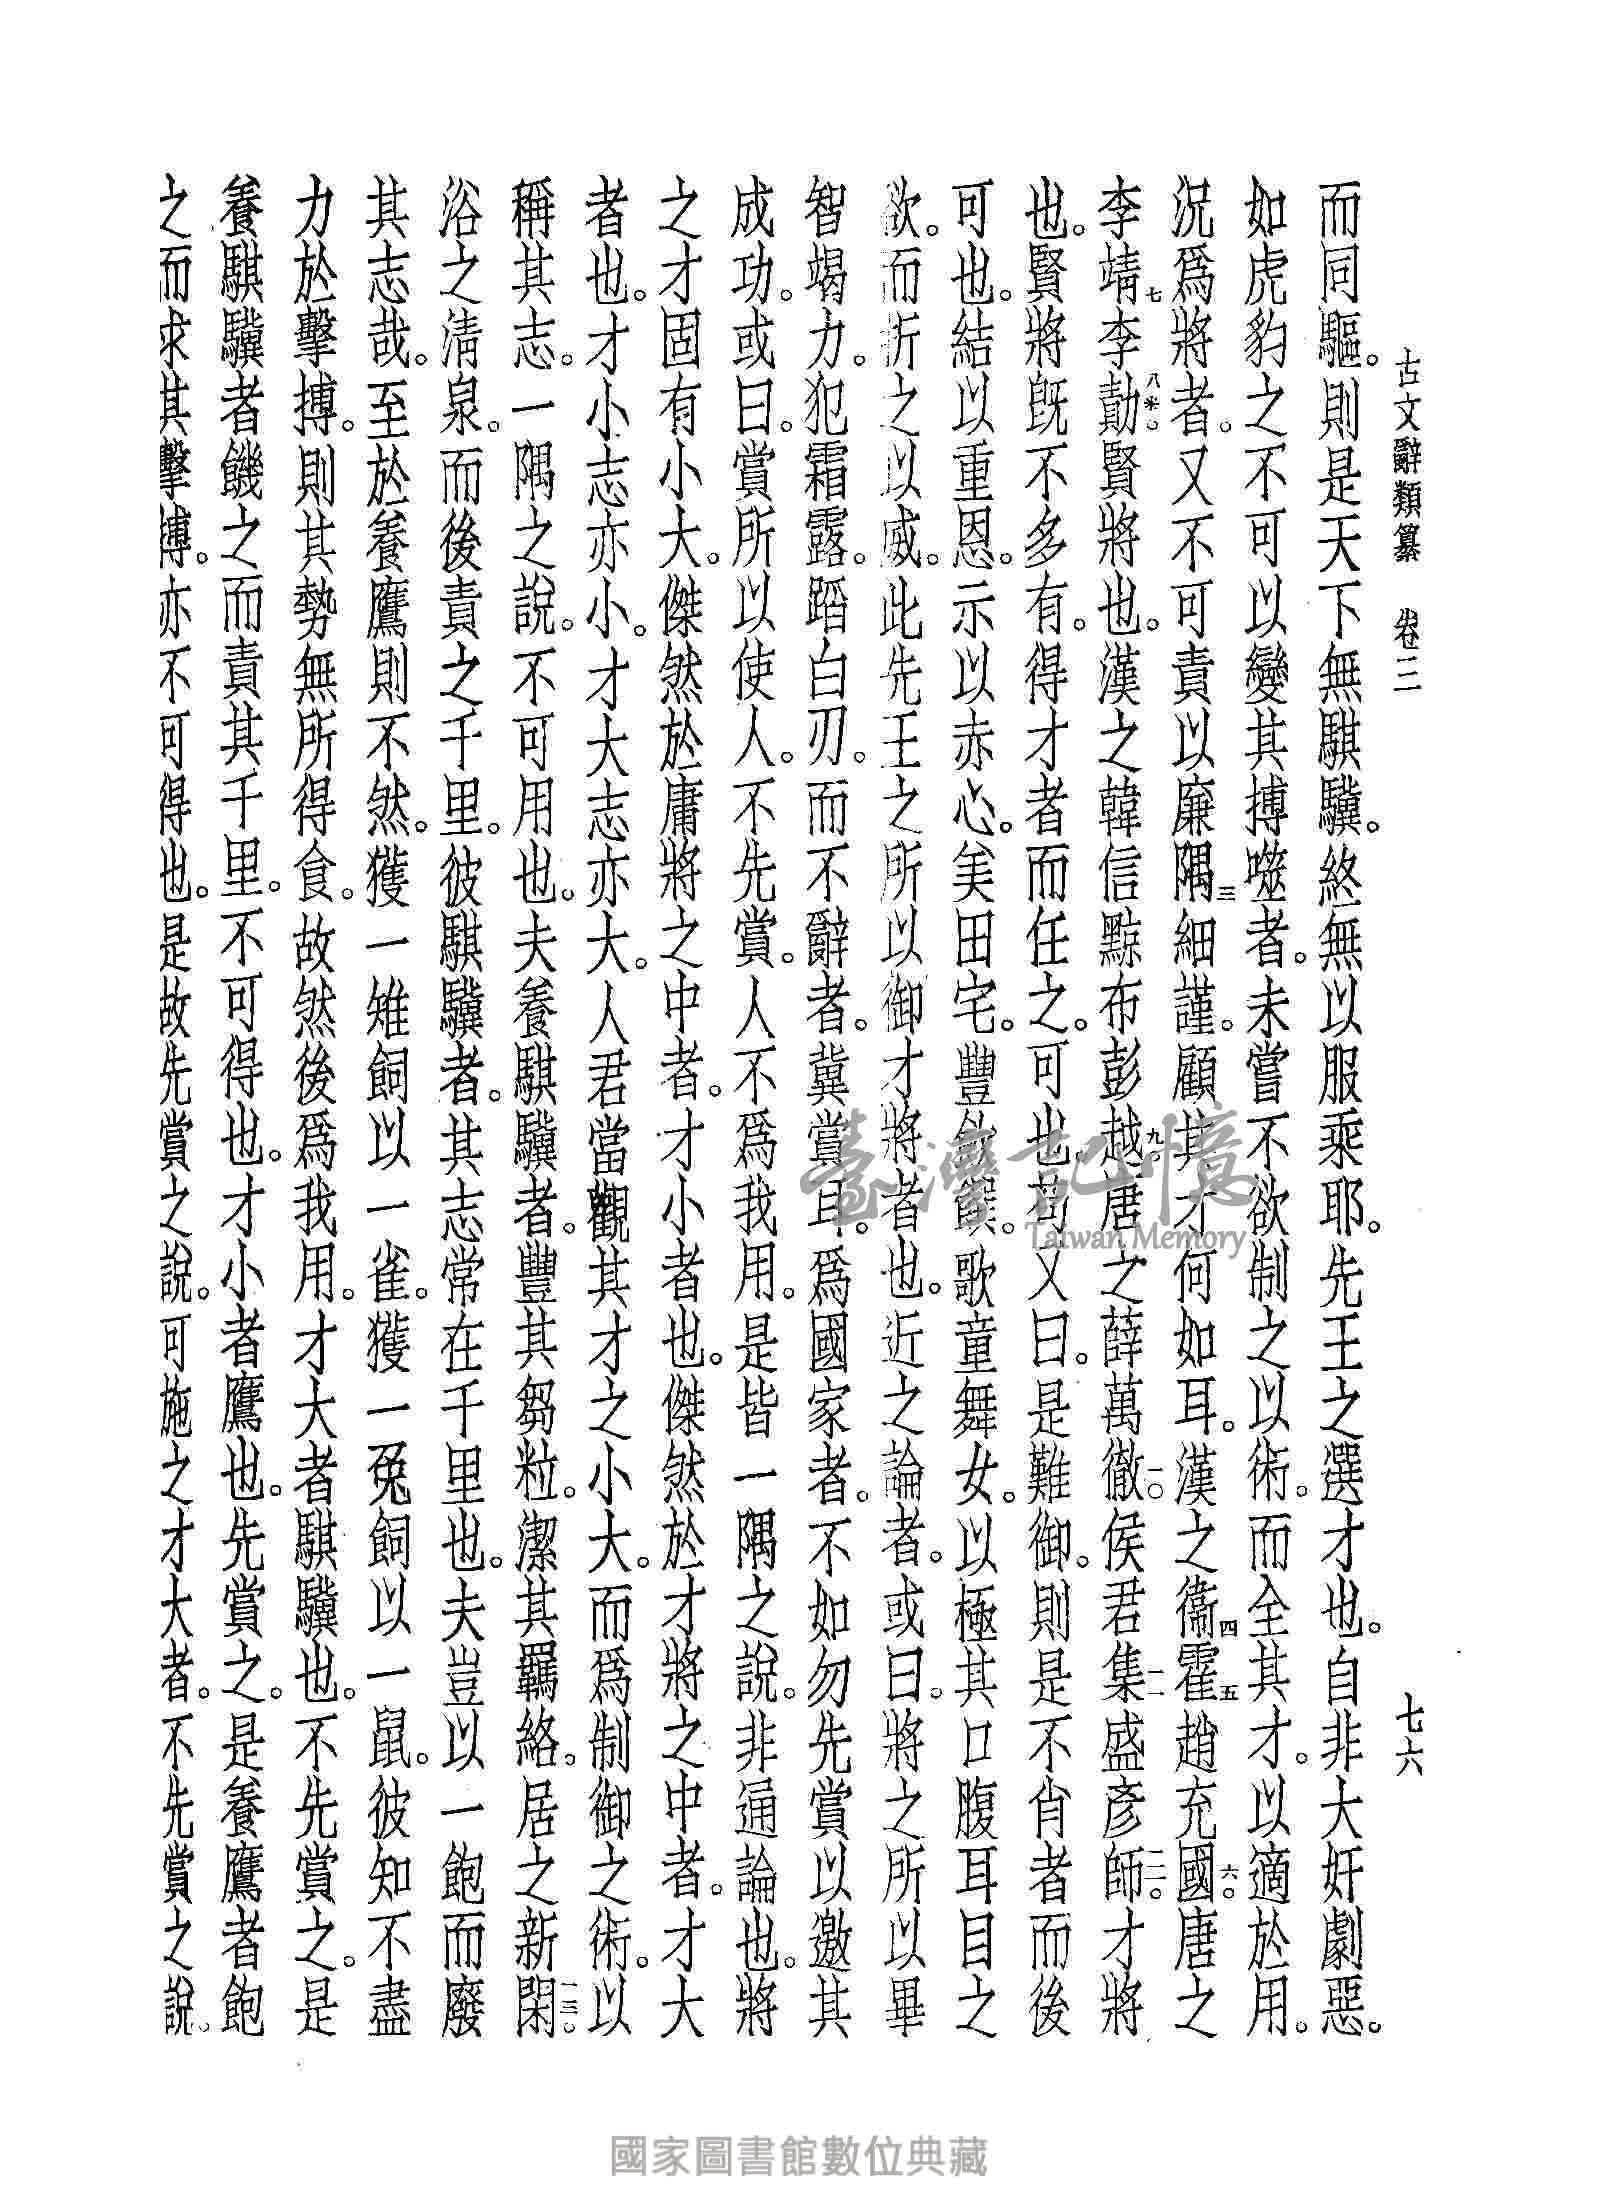 古文辭類纂　卷三　七六
而同驅。則是天下無騏驥。終無以服乘耶。先王之選才也。自非大奸劇惡。
如虎豹之不可以變其搏噬者。未嘗不欲制之以術。而全其才。以適於用。
況爲將者。又不可責以廉隅三細謹。顧其才何如耳。漢之衞四霍五趙充國六。唐之
李靖七李勣八*。賢將也。漢之韓信黥布彭越九。唐之薛萬徹一〇侯君集一一盛彥師一二。才將
也。賢將旣不多有。得才者而任之。可也。苟又曰。是難御。則是不肖者而後
可也。結以重恩。示以赤心。美田宅。豐飮饌。歌童舞女。以極其口腹耳目之
欲。而折之以威。此先王之所以御才將者也。近之論者。或曰。將之所以畢
智竭力。犯霜露。蹈白刃。而不辭者。冀賞耳。爲國家者。不如勿先賞以邀其
成功。或曰。賞所以使人。不先賞。人不爲我用。是皆一隅之說。非通論也。將
之才固有小大。傑然於庸將之中者。才小者也。傑然於才將之中者。才大
者也。才小志亦小。才大志亦大。人君當觀其才之小大。而爲制御之術。以
稱其志。一隅之說。不可用也。夫養騏驥者。豐其芻粒。潔其羈絡。居之新閑一三。
浴之淸泉。而後責之千里。彼騏驥者。其志常在千里也。夫豈以一飽而廢
其志哉。至於養鷹則不然。獲一雉飼以一雀。獲一兔飼以一鼠。彼知不盡
力於擊搏。則其勢無所得食。故然後爲我用。才大者騏驥也。不先賞之。是
養騏驥者饑之而責其千里。不可得也。才小者鷹也。先賞之。是養鷹者飽
之而求其擊搏。亦不可得也。是故先賞之說。可施之才大者。不先賞之說。
臺灣記憶
Taiwan Memory
國家圖書館數位典藏